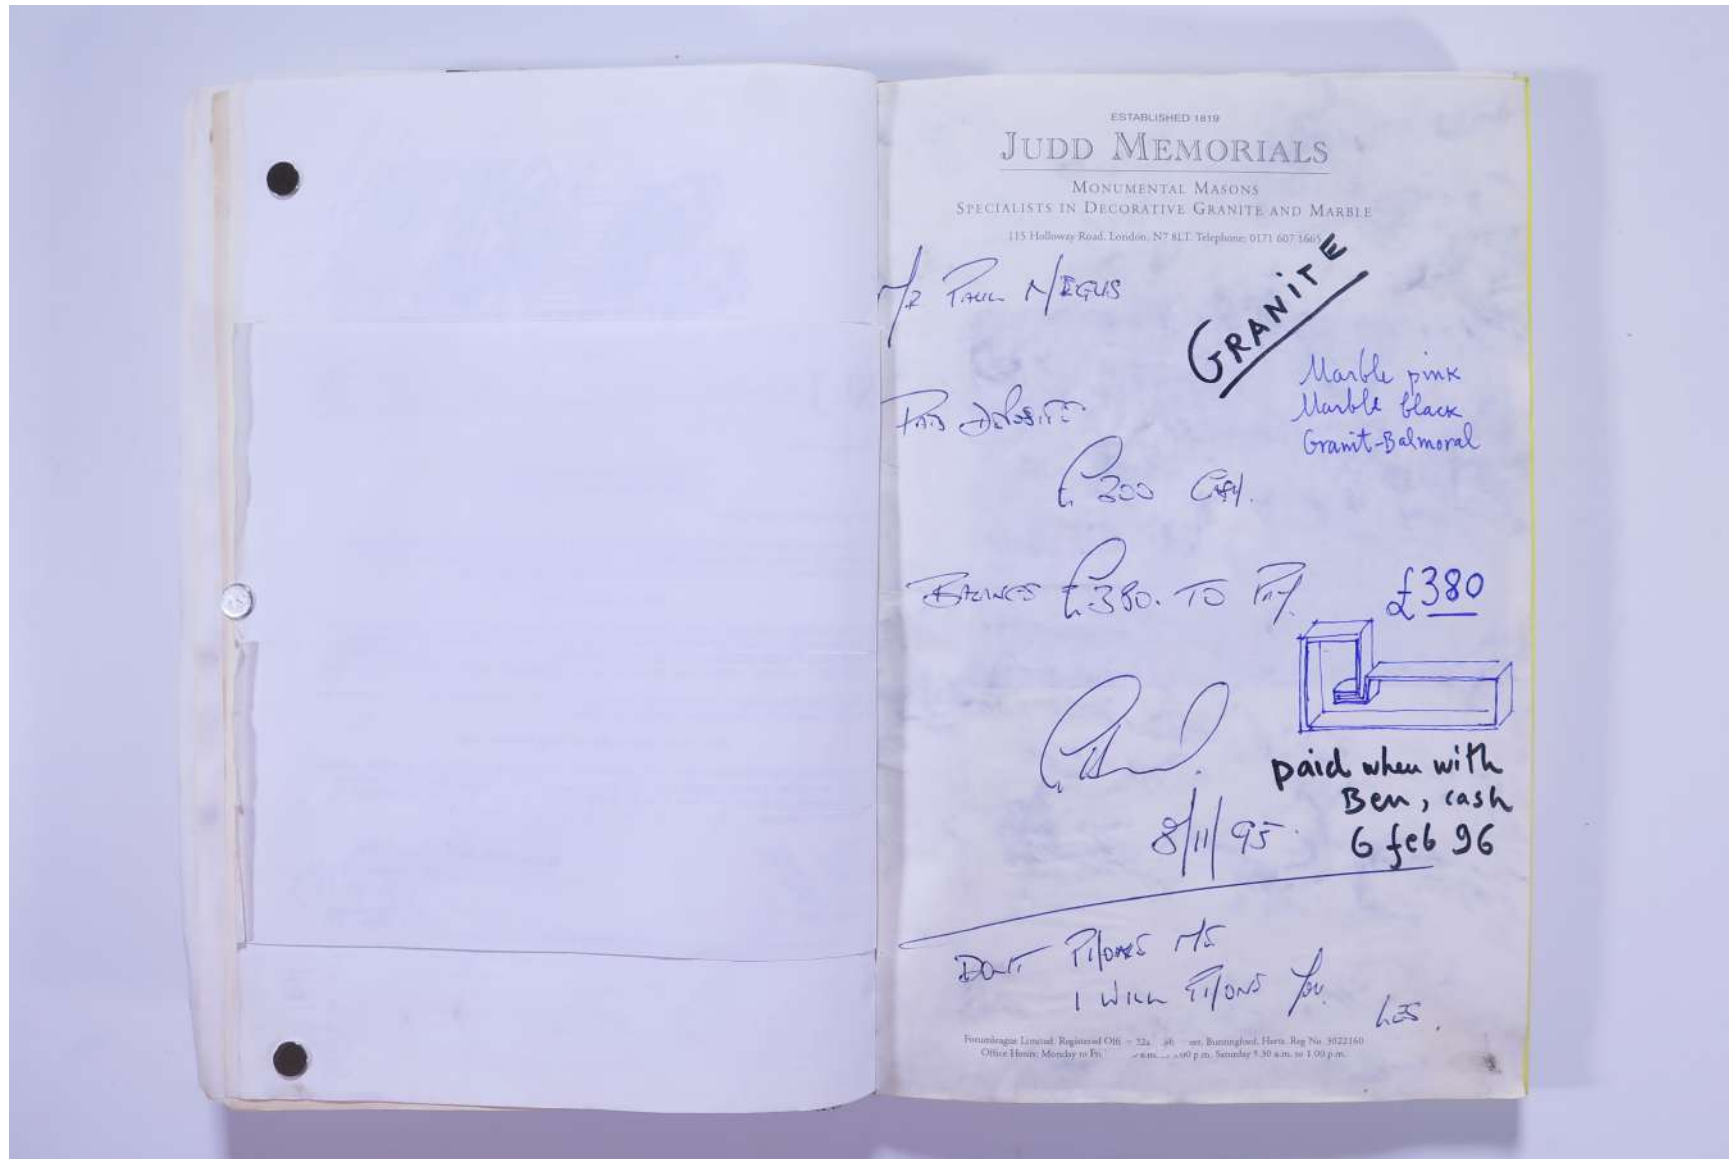 ESTABLISHED 1819
JUDD MEMORIALS
MONUMENTAL MASONS
SPECIALISTS IN DECORATIVE GRANITE AND MARBLE
115 Holloway Road, London, N7 8LT. Telephone: 0171 607 1665
GRANITE
MR PAUL NEGUS
Marble pink
Marble black
Granit-Balmoral
PAID DEPOSITE
£300 CASH.
BALANCE £380. TO PAY.
£380
paid when with
Ben, cash
6 feb 96
8/11/95.
DONT PHONE ME
I WILL PHONE YOU.
LES.
Forumleague Limited. Registered Offi 32a Buntingford, Herts. Reg No. 3022160
Office Hours: Monday to Fri p.m. Saturday 9.30 a.m. to 1.00 p.m.